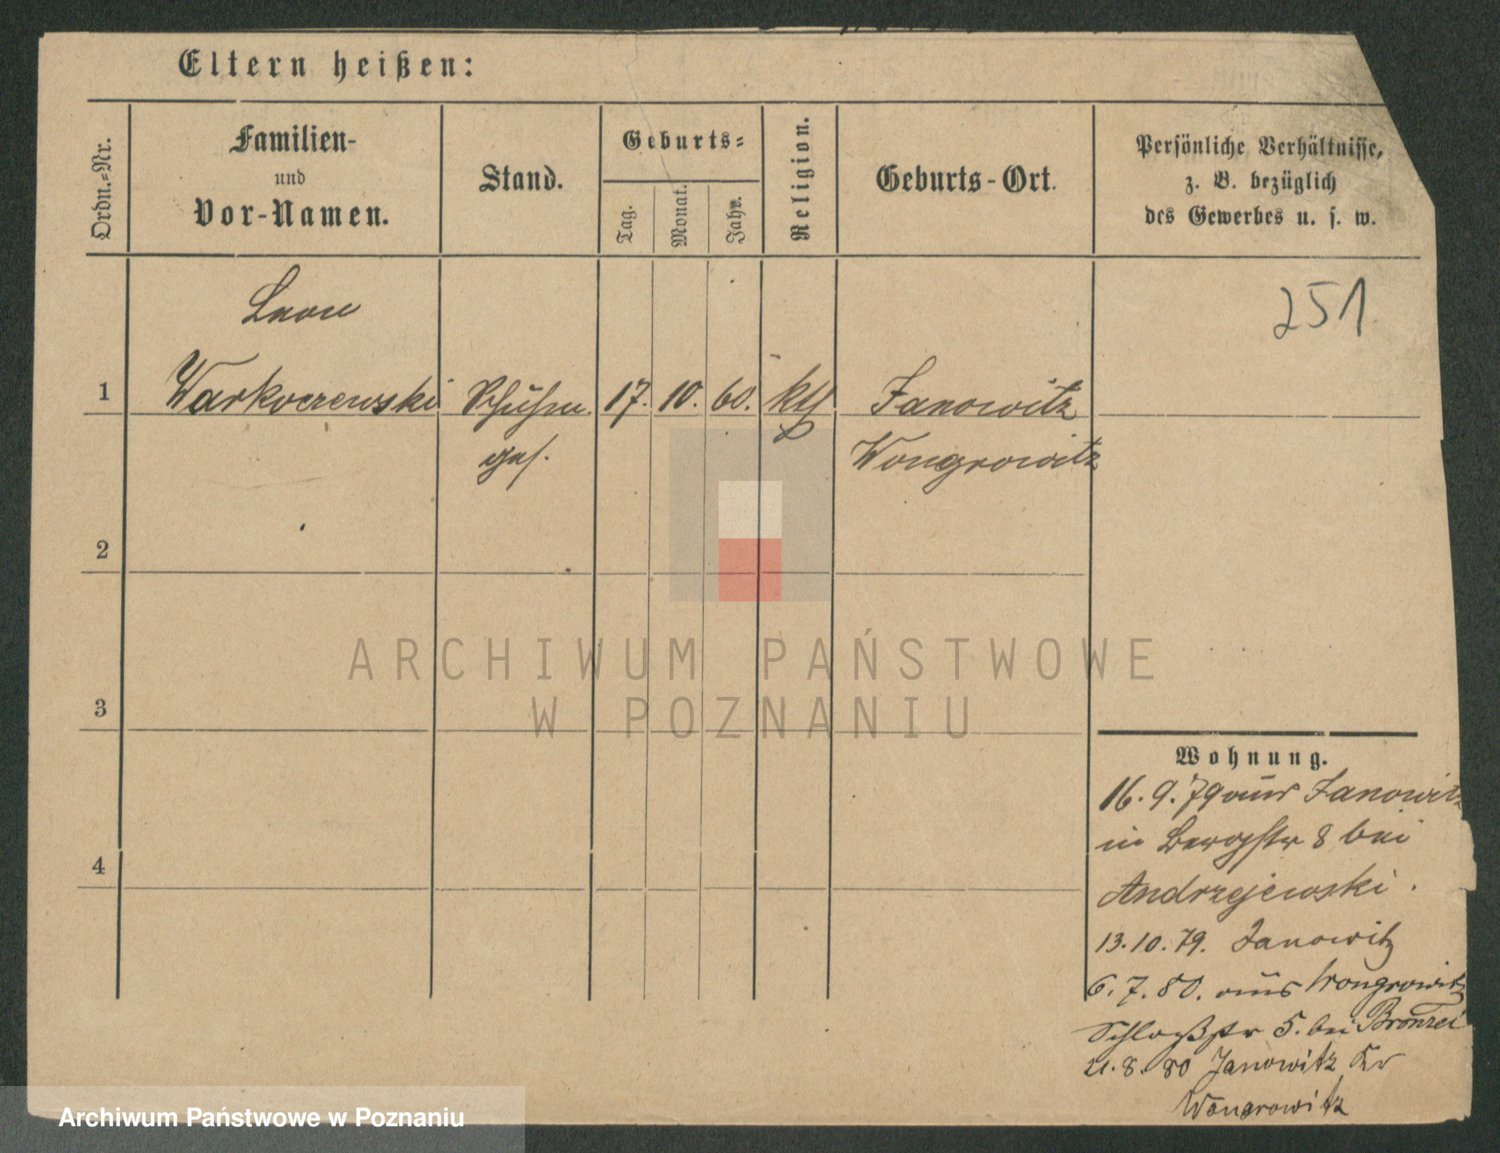 Eltern heißen:
Ordn.-Nr.
Familien-
und
Vor-Namen.
Stand.
Geburts-
Tag.
Monat.
Jahr.
Religion.
Geburts-Ort.
Persönliche Verhältnisse,
z. B. bezüglich
des Gewerbes u. s. w.
251
Leon
1 Warkoczewski Schuhm. 17. 10. 60. kth Janowitz
ges. Wongrowitz
2
3
4
ARCHIWUM PAŃSTWOWE
W POZNANIU
Wohnung.
16. 9. 79 aus Janowitz
in Bergstr 8 bei
Andrzejewski.
13. 10. 79. Janowitz
6. 7. 80. aus Wongrowitz
Schloßstr 5. bei
21. 8. 80 Janowitz Kr
Wongrowitz
Archiwum Państwowe w Poznaniu